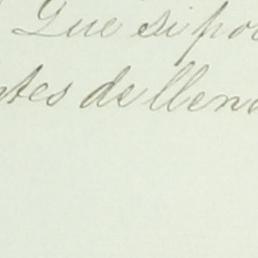 Que si por
ntes de llena